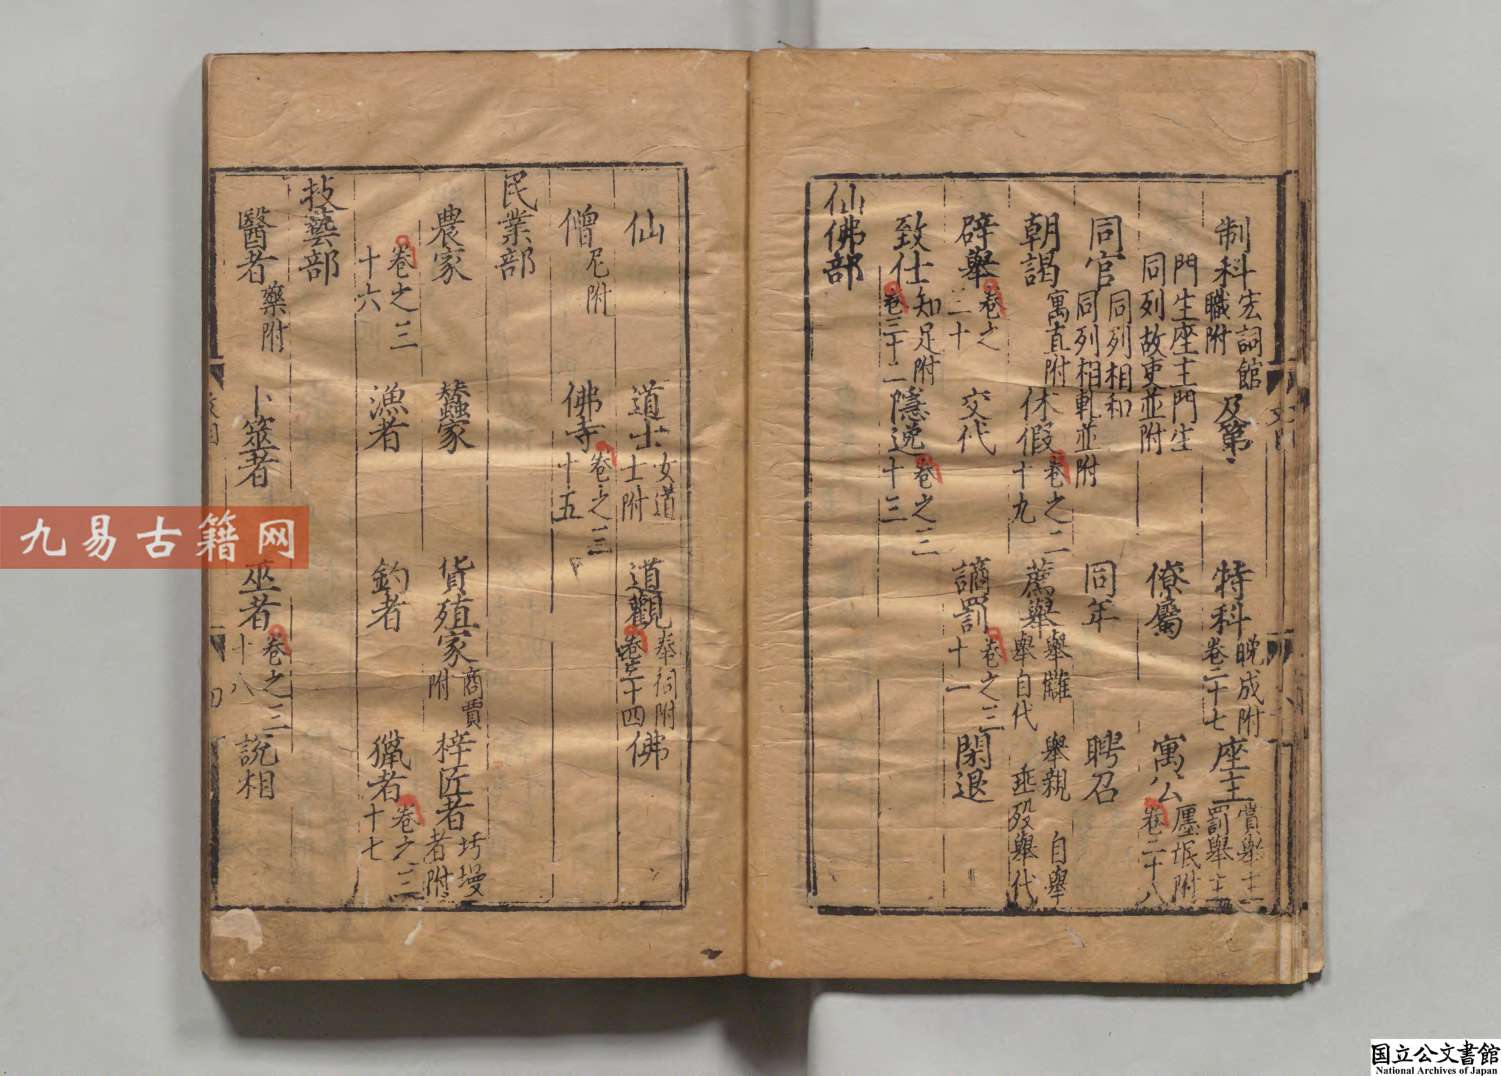 制科宏詞館職附 及第 特科晚成附卷二十七 座主賞舉主罰舉主
門生座主門生同列故吏並附 僚屬 寓公廛氓附卷二十八
同官同列相和同列相軋並附 同年 聘召
朝謁寓直附 休假卷之二十九 薦舉舉讎舉自代 舉親垂歿舉代 自舉
辟舉卷之三十 交代 謫罰卷之三十一 閑退
致仕知足附卷三十二 隱逸卷之三十三
仙佛部
仙 道士女道士附 道觀奉祠附卷三十四 佛
僧尼附 佛寺卷之三十五
民業部
農家 蠶家 貨殖家商賈附 梓匠者圬墁者附
卷之三十六 漁者 釣者 獵者卷之三十七
技藝部
醫者藥附 卜筮者 巫者卷之三十八 說相
九易古籍网
国立公文書館
National Archives of Japan